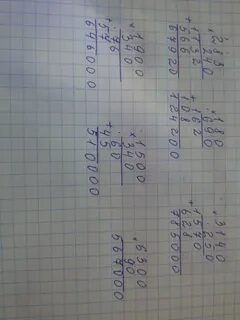 283
× 240
1132
+ 566
67920
180
× 690
162
+ 108
124200
3140
× 250
1570
+ 628
785000
1900
× 340
76
+ 57
646000
1500
× 340
60
+ 45
510000
6300
× 90
567000